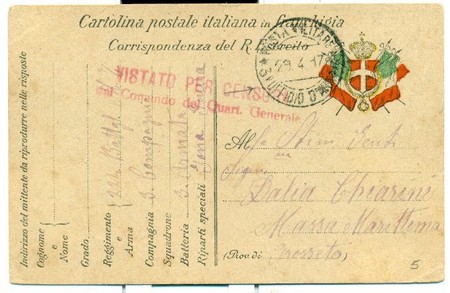 Cartolina postale italiana in franchigia
Corrispondenza del R. Esercito
POSTA MILITARE
29.4.17
3 UFFICIO D'ARMATA
VISTATO PER CENSURA
dal Comando del Quart. Generale
Indirizzo del mittente da riprodurre nelle risposte
Cognome e Nome
Grado
Reggimento e Arma
Compagnia
3. Compagnia
Squadrone
Batteria
3. Armata
Riparti speciali
Zona
Alla
Dalia Chiarini
Massa Marittima
Prov. di Grosseto
5